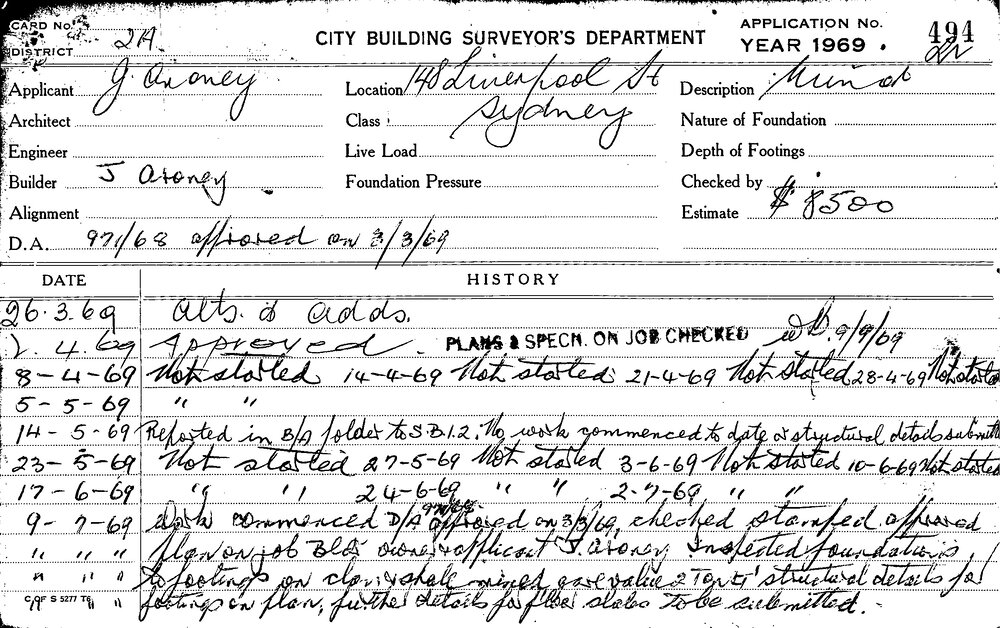 CARD No.
DISTRICT 2A
CITY BUILDING SURVEYOR'S DEPARTMENT
APPLICATION No. 494
YEAR 1969.
Applicant J Aroney
Location 148 Liverpool St
Description
Architect
Class Sydney
Nature of Foundation
Engineer
Live Load
Depth of Footings
Builder J Aroney
Foundation Pressure
Checked by
Alignment
Estimate $8500
D.A. 971/68 approved on 3/3/69
DATE HISTORY
26.3.69 Alts. & adds.
2.4.69 Approved. PLANS & SPECN. ON JOB CHECKED 9/9/69
8-4-69 Not started 14-4-69 Not started 21-4-69 Not started 28-4-69 Not started
5-5-69 " "
14-5-69 Reported in B/A folder to S.B.I.2. No work commenced to date or structural details submitted
23-5-69 Not started 27-5-69 Not started 3-6-69 Not started 10-6-69 Not started
17-6-69 " " 24-6-69 " " 2-7-69 " "
9-7-69 Work commenced D/A 971/68 approved on 3/3/69, checked stamped approved
" " " plan on job Bldr owner & applicant J. Aroney Inspected foundations,
" " " to footings on clay & shale mixed value 2 Ton structural details for
C OF S 5277 T6 " " " footings on plan, further details for floor slabs to be submitted.